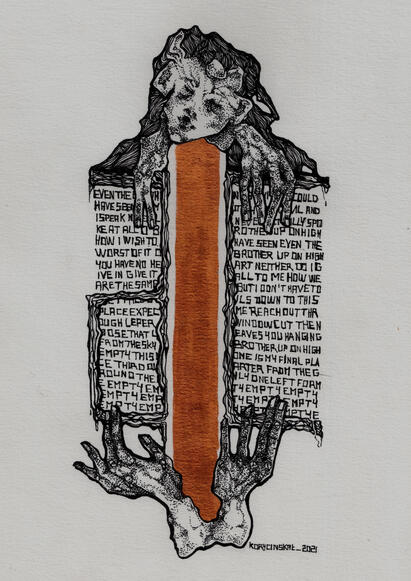 EVEN THE
HAVE SEEN
I SPEAK
KE AT ALL
HOW I WISH TO
WORST OF IT
YOU HAVE NO HE
IVE IN GIVE IT
ARE THE SAM
PLACE EXPEC
OUGH LEPER
OSE THAT L
FROM THE SKY
EMPT4 THIS
E THIRD DO
ROUND THE
E EMPT4 EM
EMPT4 EM
EMPT4 EMP
EMPT4 EMP
COULD
AND
SPO
ROTHE UP ON HIGH
HAVE SEEN EVEN THE
BROTHER UP ON HIGH
ART NEITHER DO IG
ALL TO ME HOW WE
BUT I DON'T HAVE TO
LS DOWN TO THIS
ME REACH OUT THR
WINDOW CUT THEN
EAVES YOU HANGING
BROTHER UP ON HIGH
ONE IS MY FINAL PLA
ATER FROM THE G
L4 ONE LEFT FOR
T4 EMPT4 EMPT4 E
EMPT4 EMPT4
EMPT4
KORYCINSKAT_2021